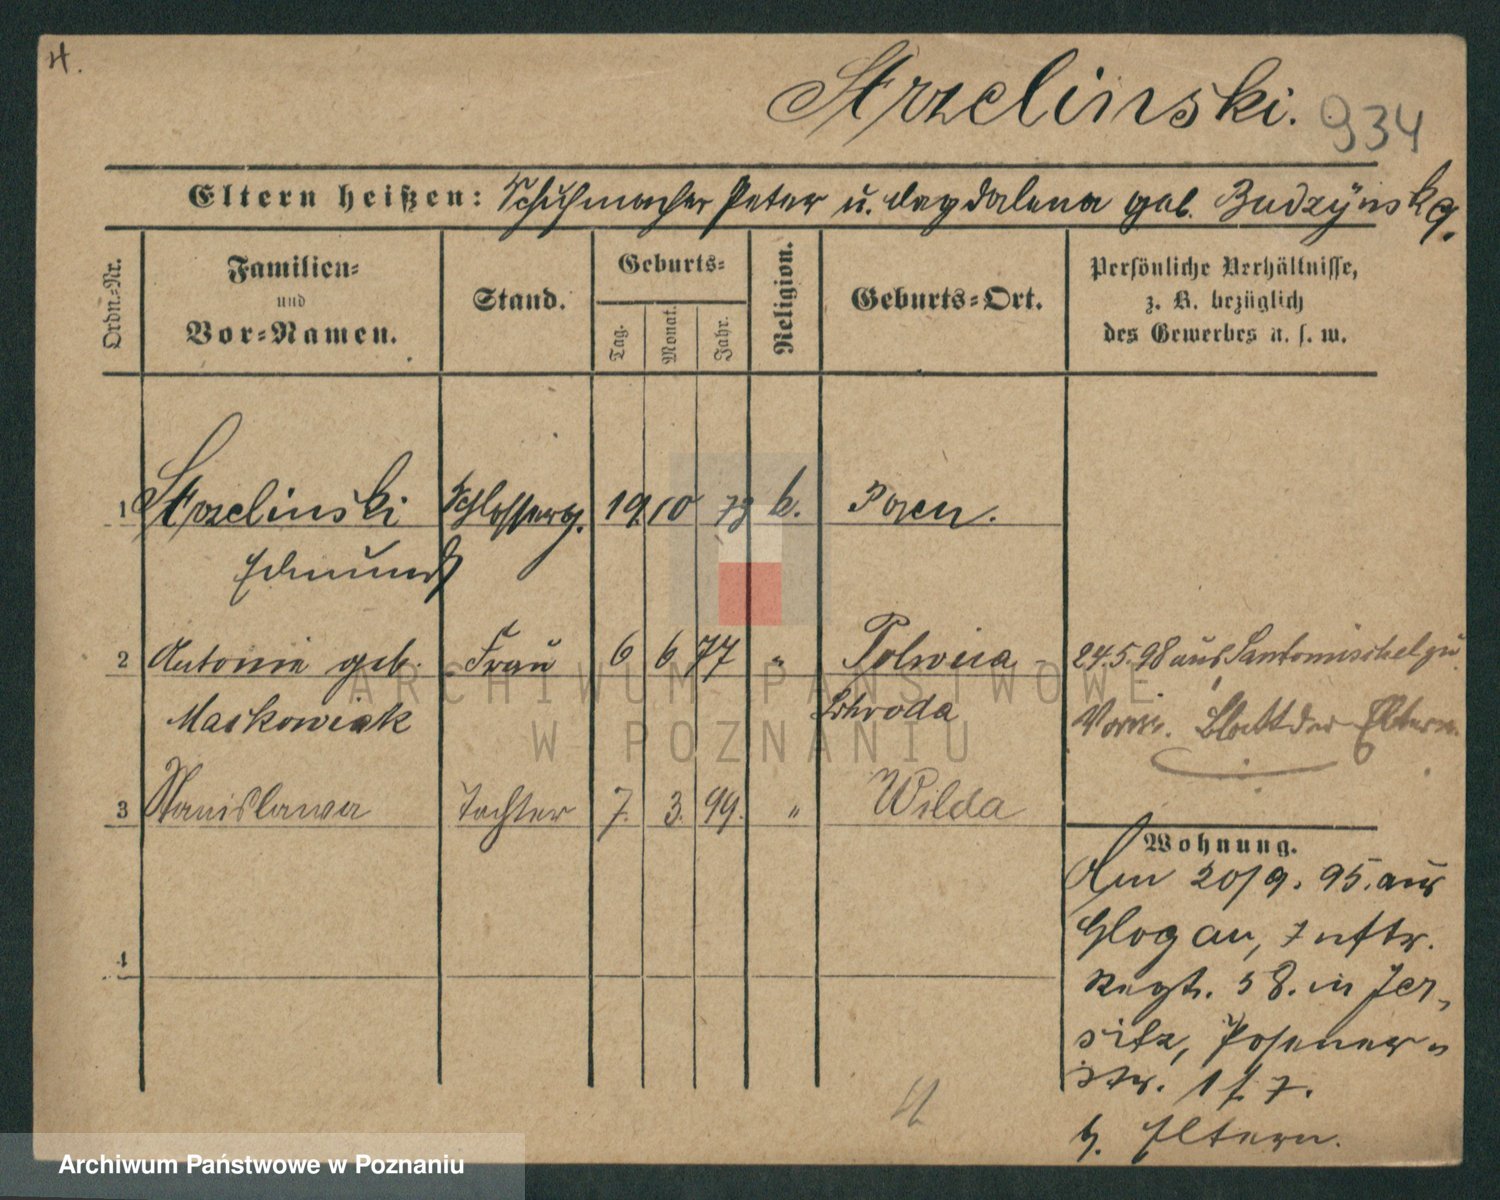 H.
Strzelinski. 934
Eltern heißen: Schuhmacher Peter u. Magdalena geb. Budzÿnska.
Ordn.-Nr.
Familien-
und
Vor-Namen.
Stand.
Geburts-
Tag.
Monat.
Jahr.
Religion.
Geburts-Ort.
Persönliche Verhältnisse,
z. B. bezüglich
des Gewerbes u. s. w.
1 Strzelinski Schlosserg. 19. 10 73 k. Posen.
Edmund
2 Antonie geb. Frau 6 6 77 " Polwica - 24.5.98 aus Santomischel zu
Maskowiak Schroda Blatt der Eltern
3 Stanislawa Tochter 7. 3. 99. " Wilda
Wohnung.
Am 20/9. 95. aus
Glogau, Inftr.
Regt. 58. in Jer-
sitz, Posener-
Str. 17.
b. Eltern.
4
H
ARCHIWUM PAŃSTWOWE
W POZNANIU
Archiwum Państwowe w Poznaniu